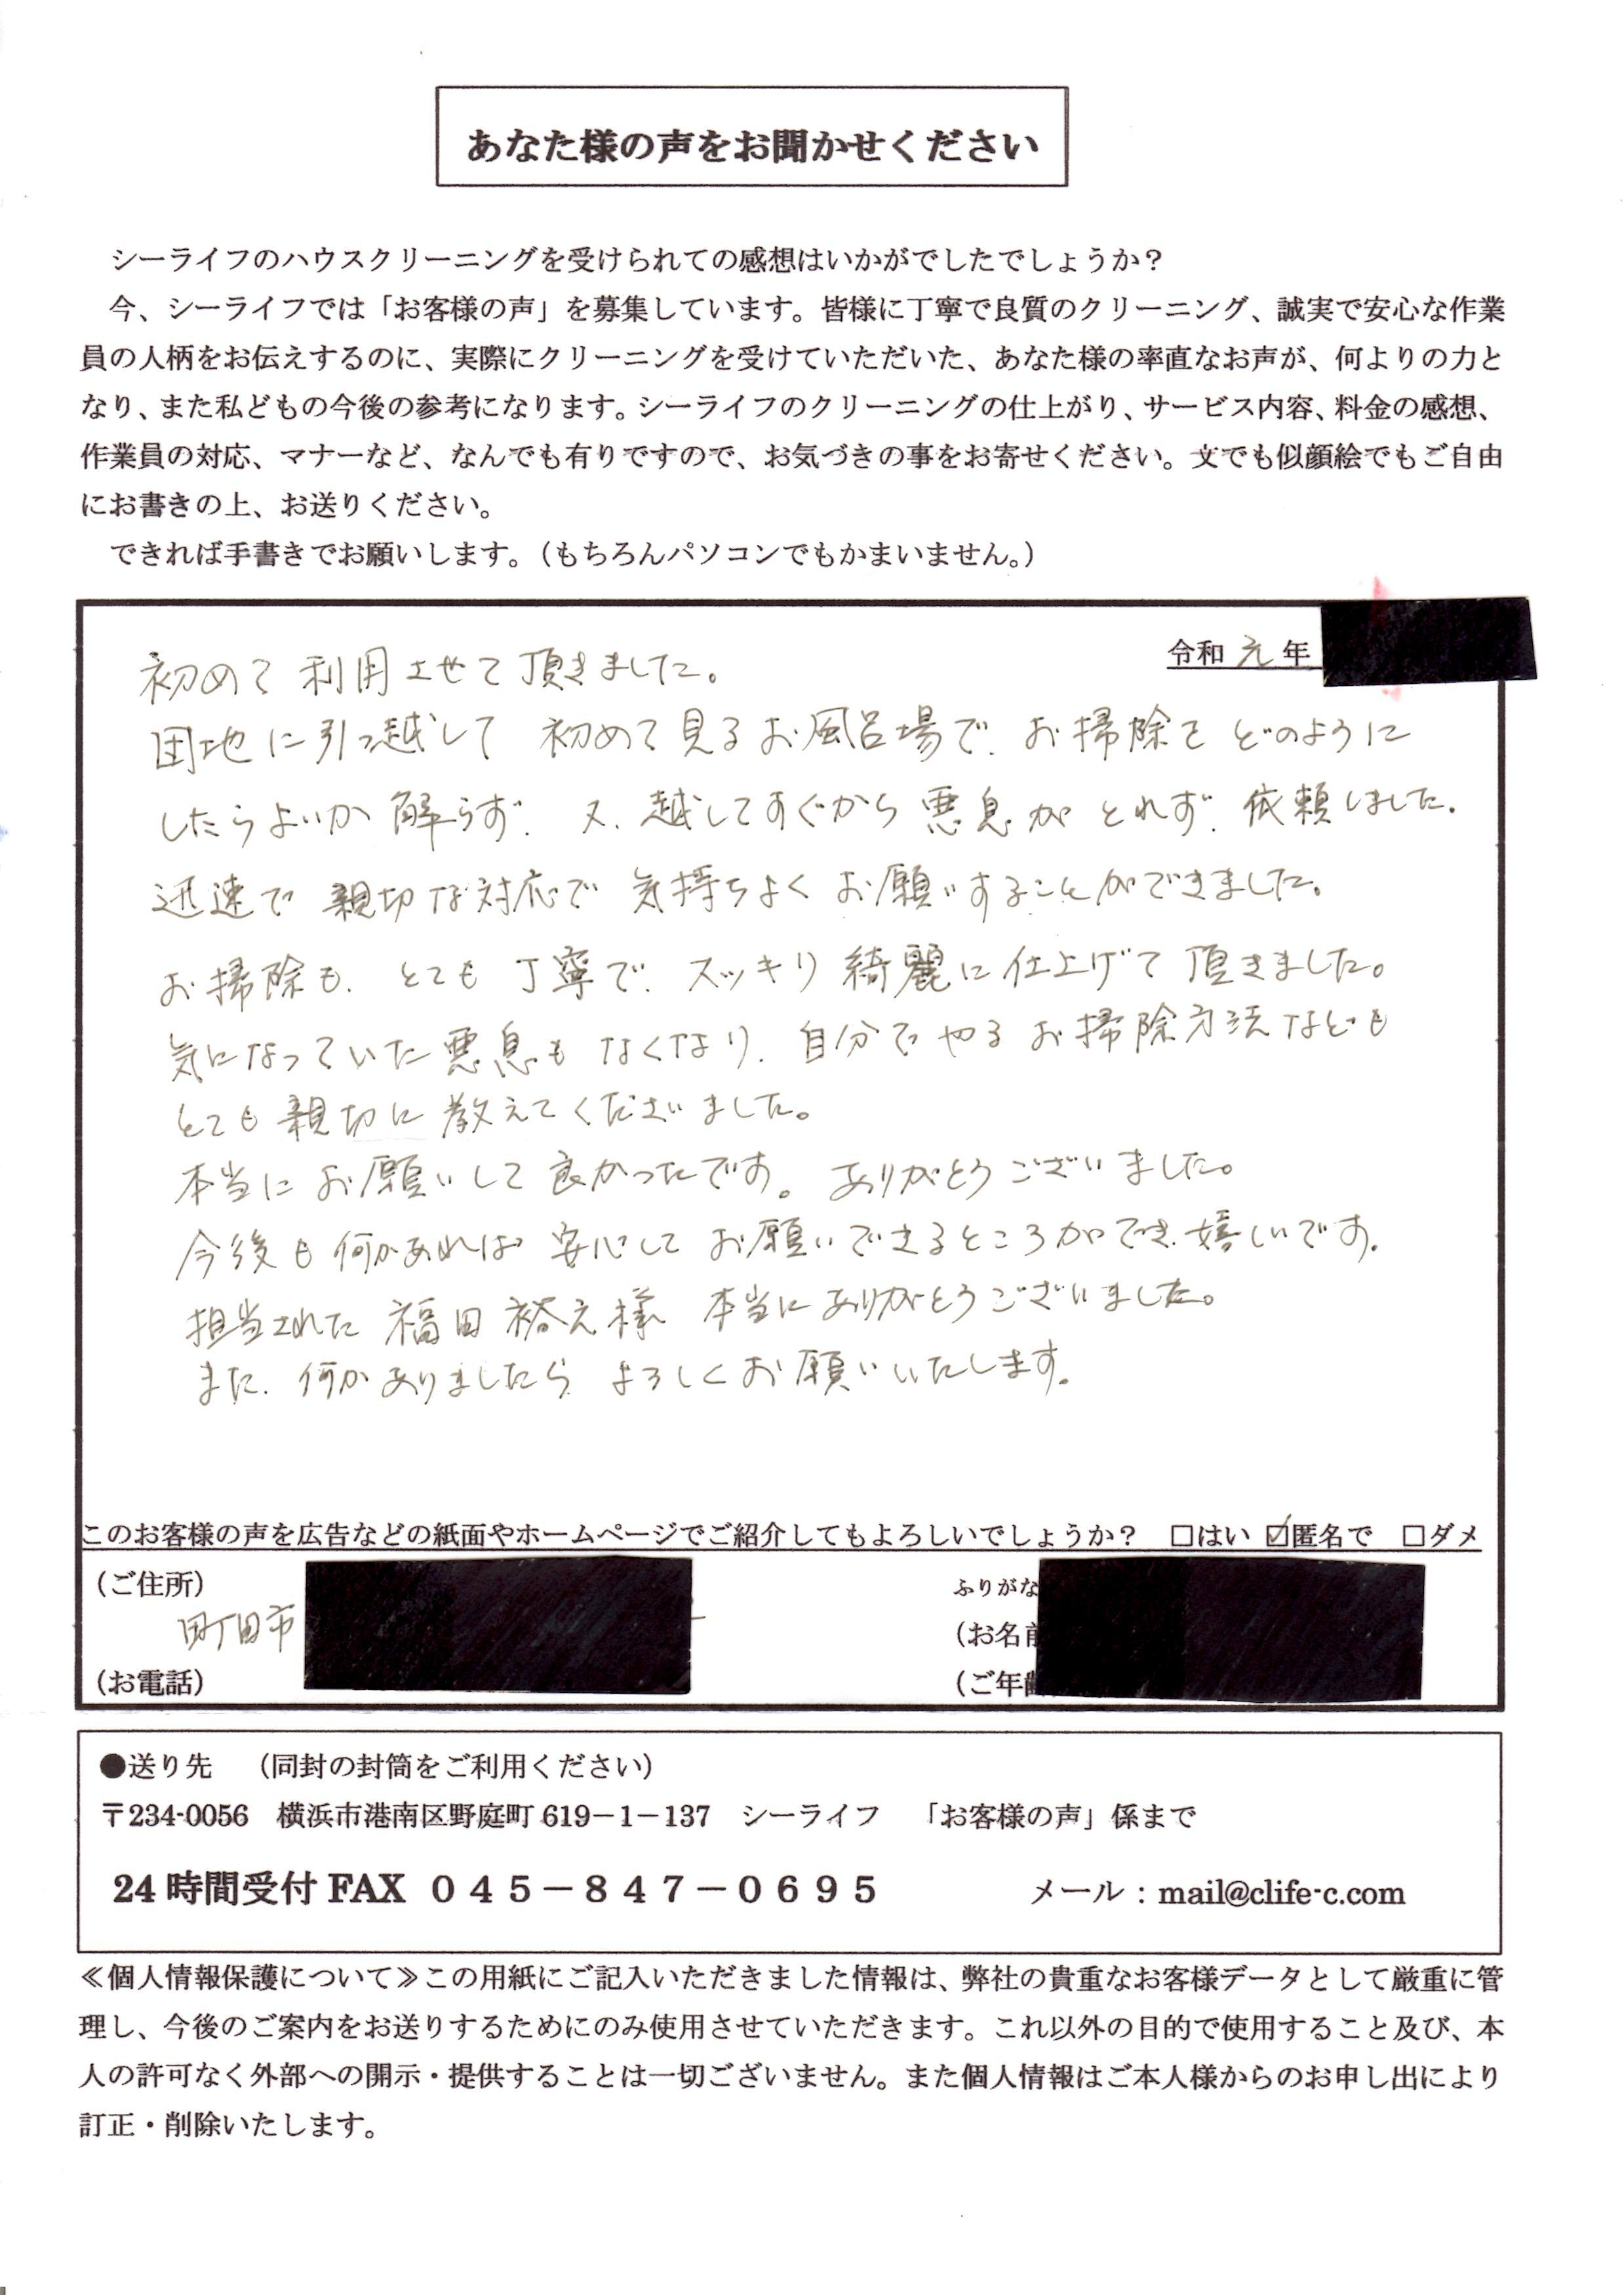 あなた様の声をお聞かせください
シーライフのハウスクリーニングを受けられての感想はいかがでしたでしょうか？
今、シーライフでは「お客様の声」を募集しています。皆様に丁寧で良質のクリーニング、誠実で安心な作業
員の人柄をお伝えするのに、実際にクリーニングを受けていただいた、あなた様の率直なお声が、何よりの力と
なり、また私どもの今後の参考になります。シーライフのクリーニングの仕上がり、サービス内容、料金の感想、
作業員の対応、マナーなど、なんでも有りですので、お気づきの事をお寄せください。文でも似顔絵でもご自由
にお書きの上、お送りください。
できれば手書きでお願いします。（もちろんパソコンでもかまいません。）
令和 元 年
初めて利用させて頂きました。
団地に引っ越して 初めて見るお風呂場で、お掃除をどのように
したらよいか解らず、又、越してすぐから悪息がとれず、依頼しました。
迅速で親切な対応で気持ちよくお願いすることができました。
お掃除も、とても丁寧で、スッキリ綺麗に仕上げて頂きました。
気になっていた悪息もなくなり、自分でやるお掃除方法なども
とても親切に教えてくださいました。
本当にお願いして良かったです。ありがとうございました。
今後も何かあれば安心してお願いできるところができ、嬉しいです。
担当された 福田 様 本当にありがとうございました。
また、何かありましたら よろしくお願いいたします。
このお客様の声を広告などの紙面やホームページでご紹介してもよろしいでしょうか？ □はい ☑匿名で □ダメ
（ご住所） ふりがな
町田市 （お名前
（お電話） （ご年齢
●送り先 （同封の封筒をご利用ください）
〒234-0056 横浜市港南区野庭町 619－1－137 シーライフ 「お客様の声」係まで
24 時間受付 FAX ０４５－８４７－０６９５ メール：mail@clife-c.com
≪個人情報保護について≫この用紙にご記入いただきました情報は、弊社の貴重なお客様データとして厳重に管
理し、今後のご案内をお送りするためにのみ使用させていただきます。これ以外の目的で使用すること及び、本
人の許可なく外部への開示・提供することは一切ございません。また個人情報はご本人様からのお申し出により
訂正・削除いたします。